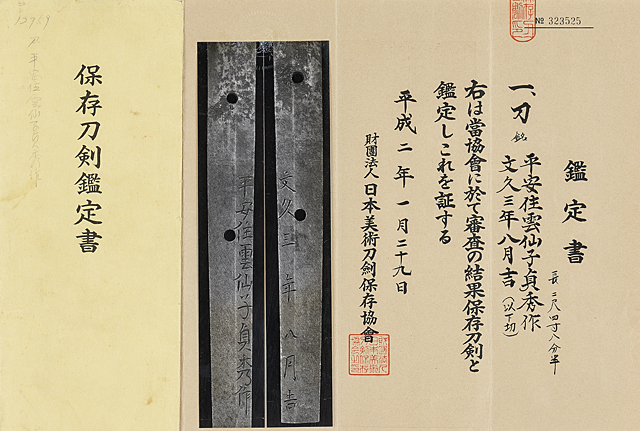 № 323525
鑑定書
一、刀 銘 平安住雲仙子貞秀作
文久三年八月吉(以下切)
長二尺四寸八分半
右は當協會に於て審査の結果保存刀剣と
鑑定しこれを証する
平成二年一月二十九日
財團法人 日本美術刀劍保存協會
文久三年八月吉
平安住雲仙子貞秀作
保存刀剣鑑定書
12969
刀 平安住雲仙子貞秀作